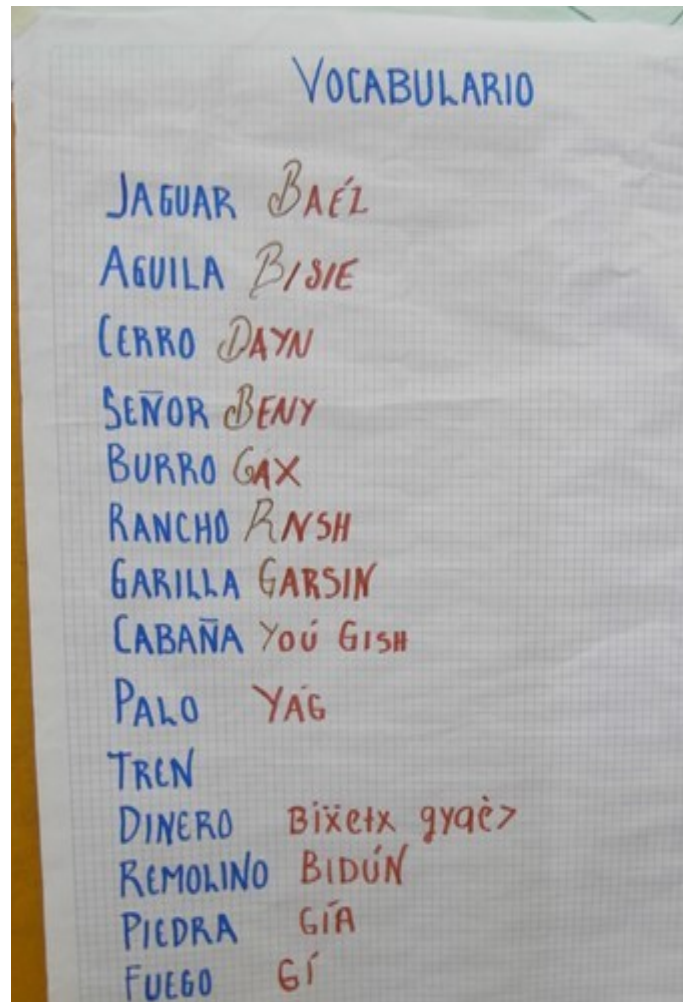 VOCABULARIO
JAGUAR BAÉZ
AGUILA BISIE
CERRO DAYN
SEÑOR BENY
BURRO GAX
RANCHO RNSH
GARILLA GARSIN
CABAÑA YOÚ GISH
PALO YÁG
TREN
DINERO Bixetx gyaè>
REMOLINO BIDÚN
PIEDRA GÍA
FUEGO GÍ